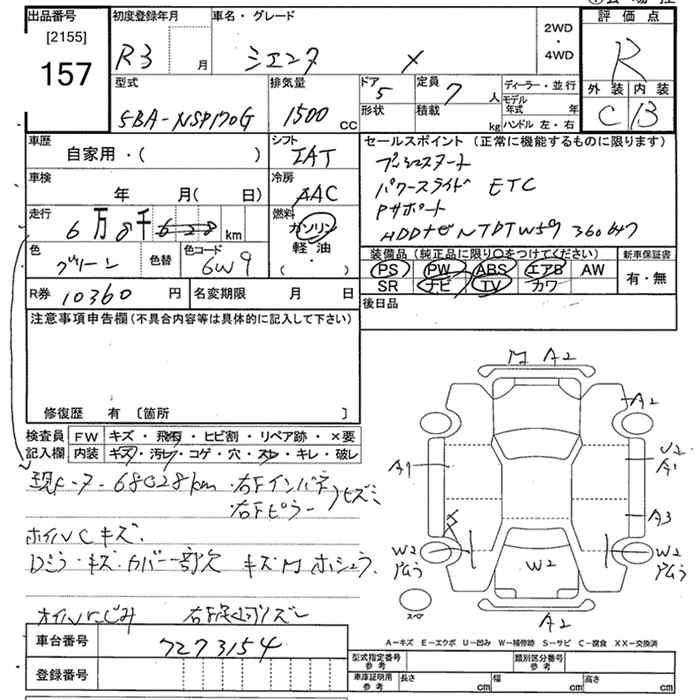 出品番号 初度登録年月 車名・グレード 評価点
[2155] 2WD
157 R3 月 シエンタ X ・ R
4WD
型式 排気量 ドア 5 定員 7 人 ディーラー・並行 外装 内装
5BA-NSP170G 1500 cc 形状 積載 kg モデル年式 年 C B
ハンドル 左・右
車歴 シフト セールスポイント (正常に機能するものに限ります)
自家用・( ) IAT プッシュスタート
車検 冷房 パワースライド ETC
年 月( 日) AAC Pサポート
走行 燃料 HDDナビNTDT W59
6万8千 km ガソリン
軽油
( ・ )
装備品 (純正品に限り〇をつけてください) 新車保証書
色 色替 色コード PS PW ABS エアB AW 有・無
グリーン 6W9 SR ナビ TV カワ
R券 10360 円 名変期限 月 日 後日品
注意事項申告欄 (不具合内容等は具体的に記入して下さい)
修復歴 有 〔箇所 〕
検査員 FW キズ・飛石・ヒビ割・リペア跡・×要
記入欄 内装 キズ・汚レ・コゲ・穴・スレ・キレ・破レ
現メーター 68028km ・右Fインパネ
・右Fピラー
ホイルCキズ.
Dミラ・キズ・カバー一部欠
A2
A2
A1
A1
A3
W2
W2
W2
スペア
A2
A-キズ E-エクボ U-凹み W-補修跡 S-サビ C-腐食 XX-交換済
車台番号 7273154
登録番号
型式指定番号 参考 類別区分番号 参考
車庫証明用 参考 長さ cm 幅 cm 高さ cm